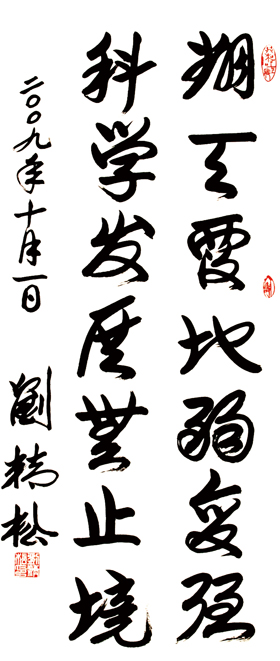 翻天覆地弱变强
科学发展无止境
二〇〇九年十月一日
刘精松